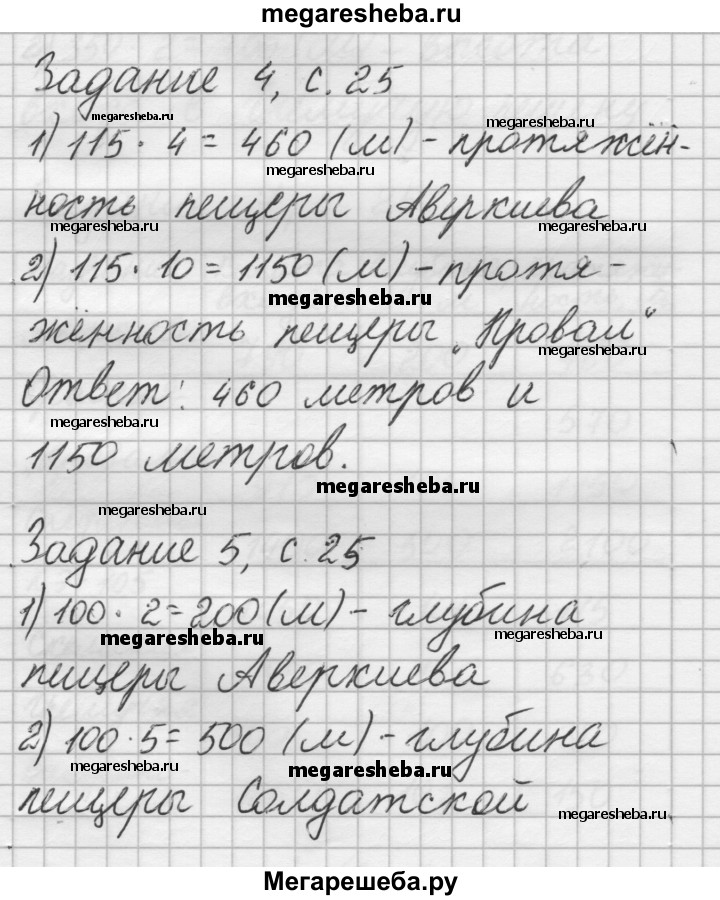 megaresheba.ru
Задание 4, с. 25
megaresheba.ru megaresheba.ru
1) 115 · 4 = 460 (м) - протяжён-
megaresheba.ru
ность пещеры Аверкиева
megaresheba.ru megaresheba.ru
2) 115 · 10 = 1150 (м) - протя-
megaresheba.ru
жённость пещеры „Провал“
megaresheba.ru
Ответ: 460 метров и
megaresheba.ru
1150 метров.
megaresheba.ru
megaresheba.ru
Задание 5, с. 25
1) 100 · 2 = 200 (м) - глубина
megaresheba.ru megaresheba.ru
пещеры Аверкиева
2) 100 · 5 = 500 (м) - глубина
megaresheba.ru megaresheba.ru
пещеры Солдатской
megaresheba.ru
Мегарешеба.ру